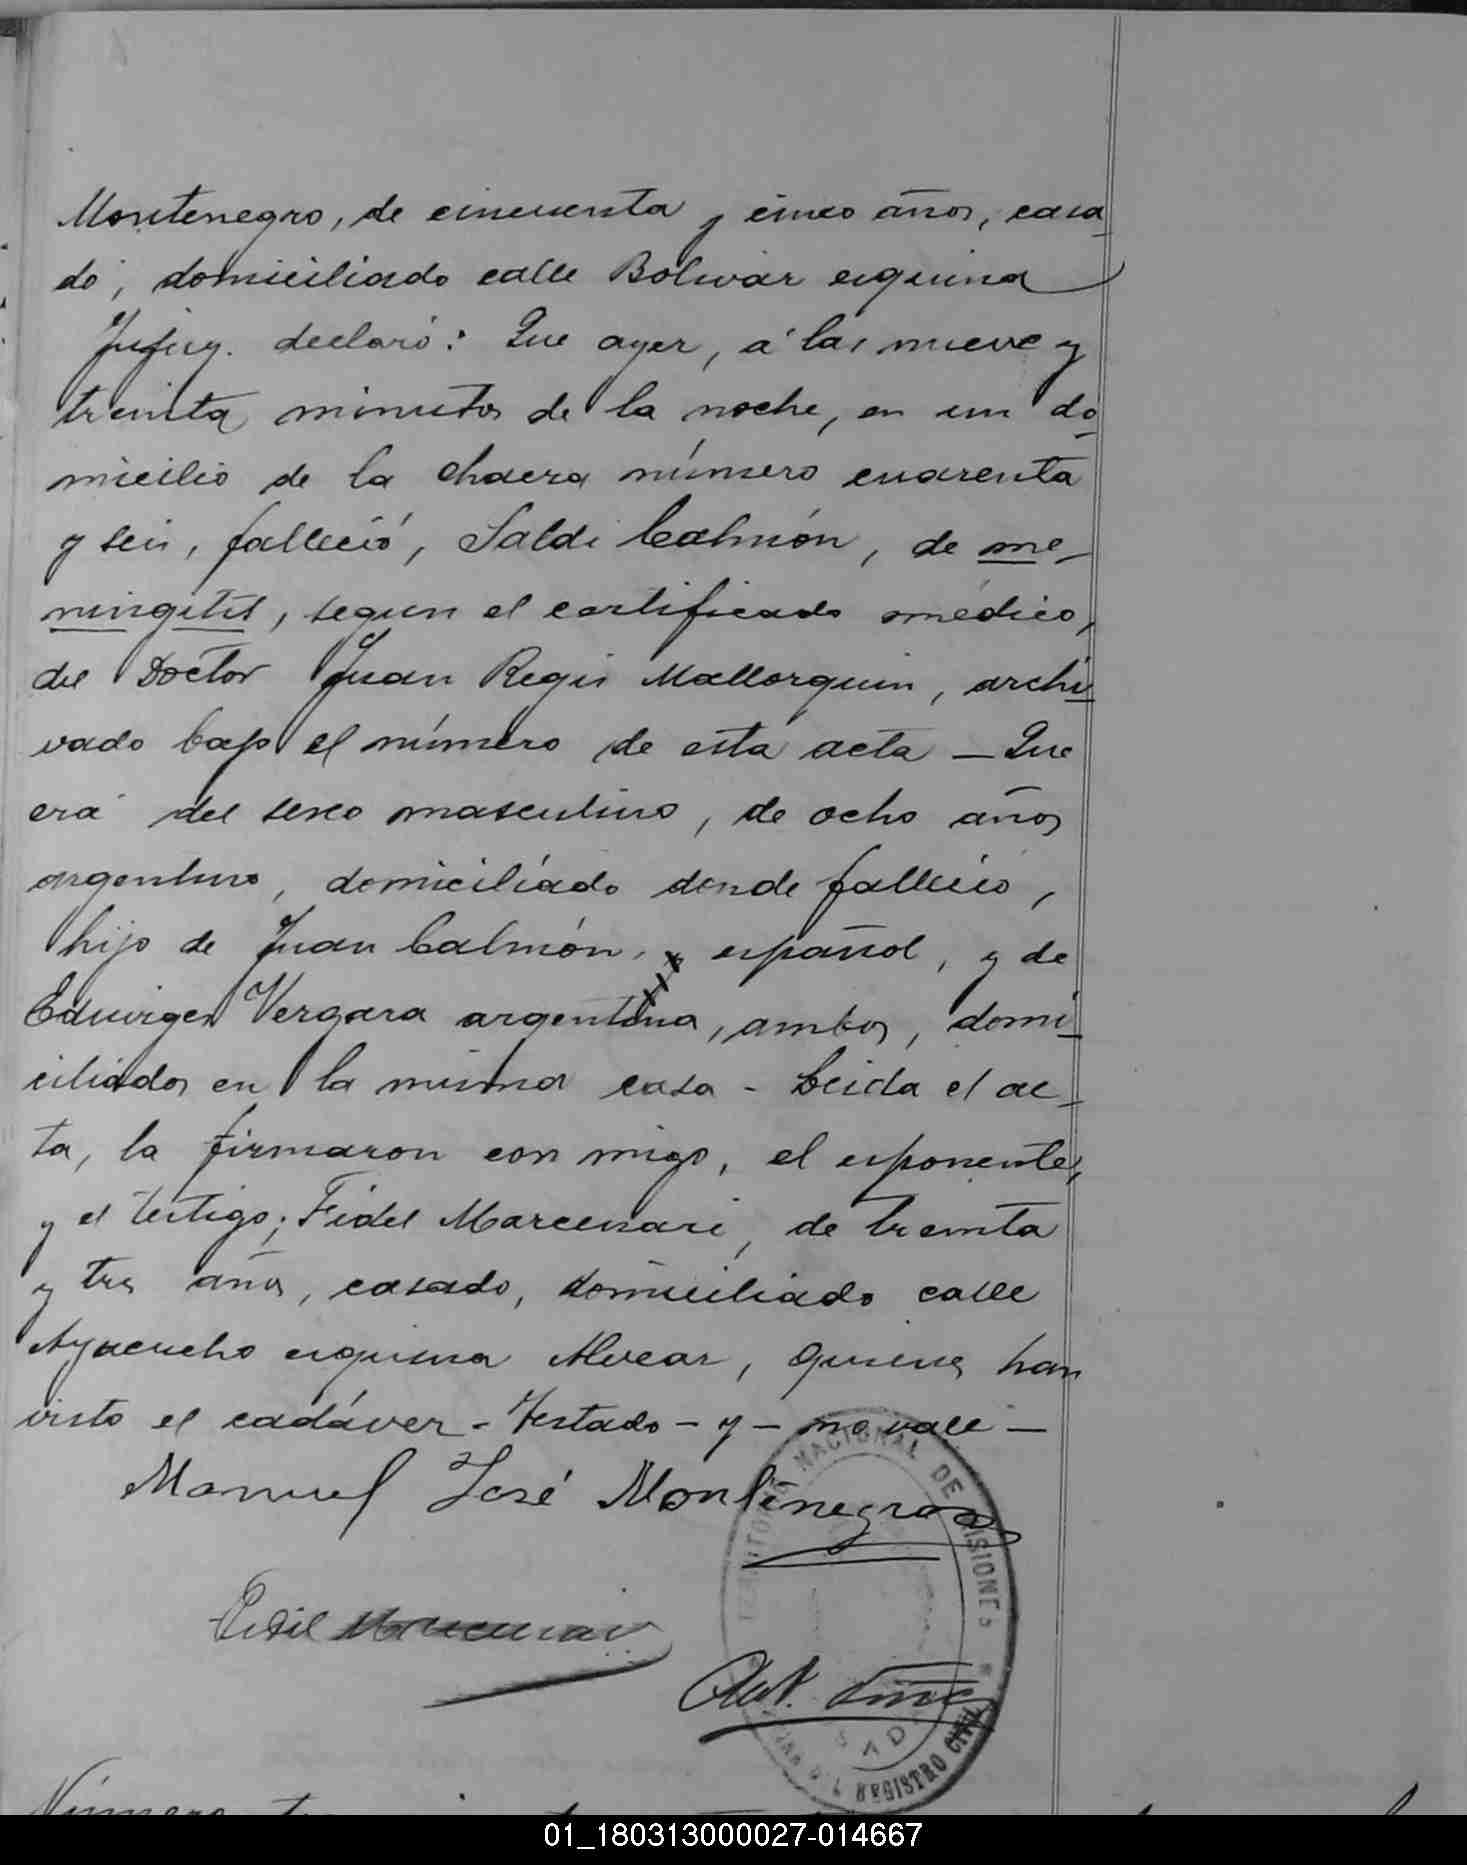 Montenegro, de cincuenta y cinco años, casa-
do, domiciliado calle Bolivar esquina
Jujuy. declaró: Que ayer, á las nueve y
treinta minutos de la noche, en un do-
micilio de la chacra número cuarenta
y seis, falleció, Saldi Calmón, de me-
ningitis, segun el certificado médico,
del Doctor Juan Regis Mallorquin, archi-
vado bajo el número de esta acta — Que
era del sexo masculino, de ocho años
argentino, domiciliado donde falleció,
hijo de Juan Calmón, español, y de
Eduviges Vergara argentina, ambos, domi-
ciliados en la misma casa - Leida el ac-
ta, la firmaron con migo, el esponente,
y el testigo; Fidel Marcenari, de treinta
y tres años, casado, domiciliado calle
Ayacucho esquina Alvear, quienes han
visto el cadáver - Testado - y - no vale —
Manuel José Montenegro
Fidel Marcenari
TERRITORIO NACIONAL DE MISIONES
REGISTRO CIVIL
Número
01_180313000027-014667